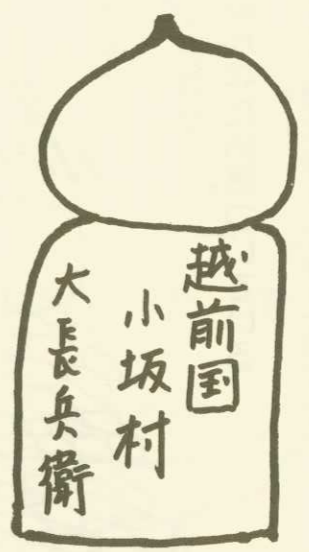 越前国
小坂村
大長兵衛